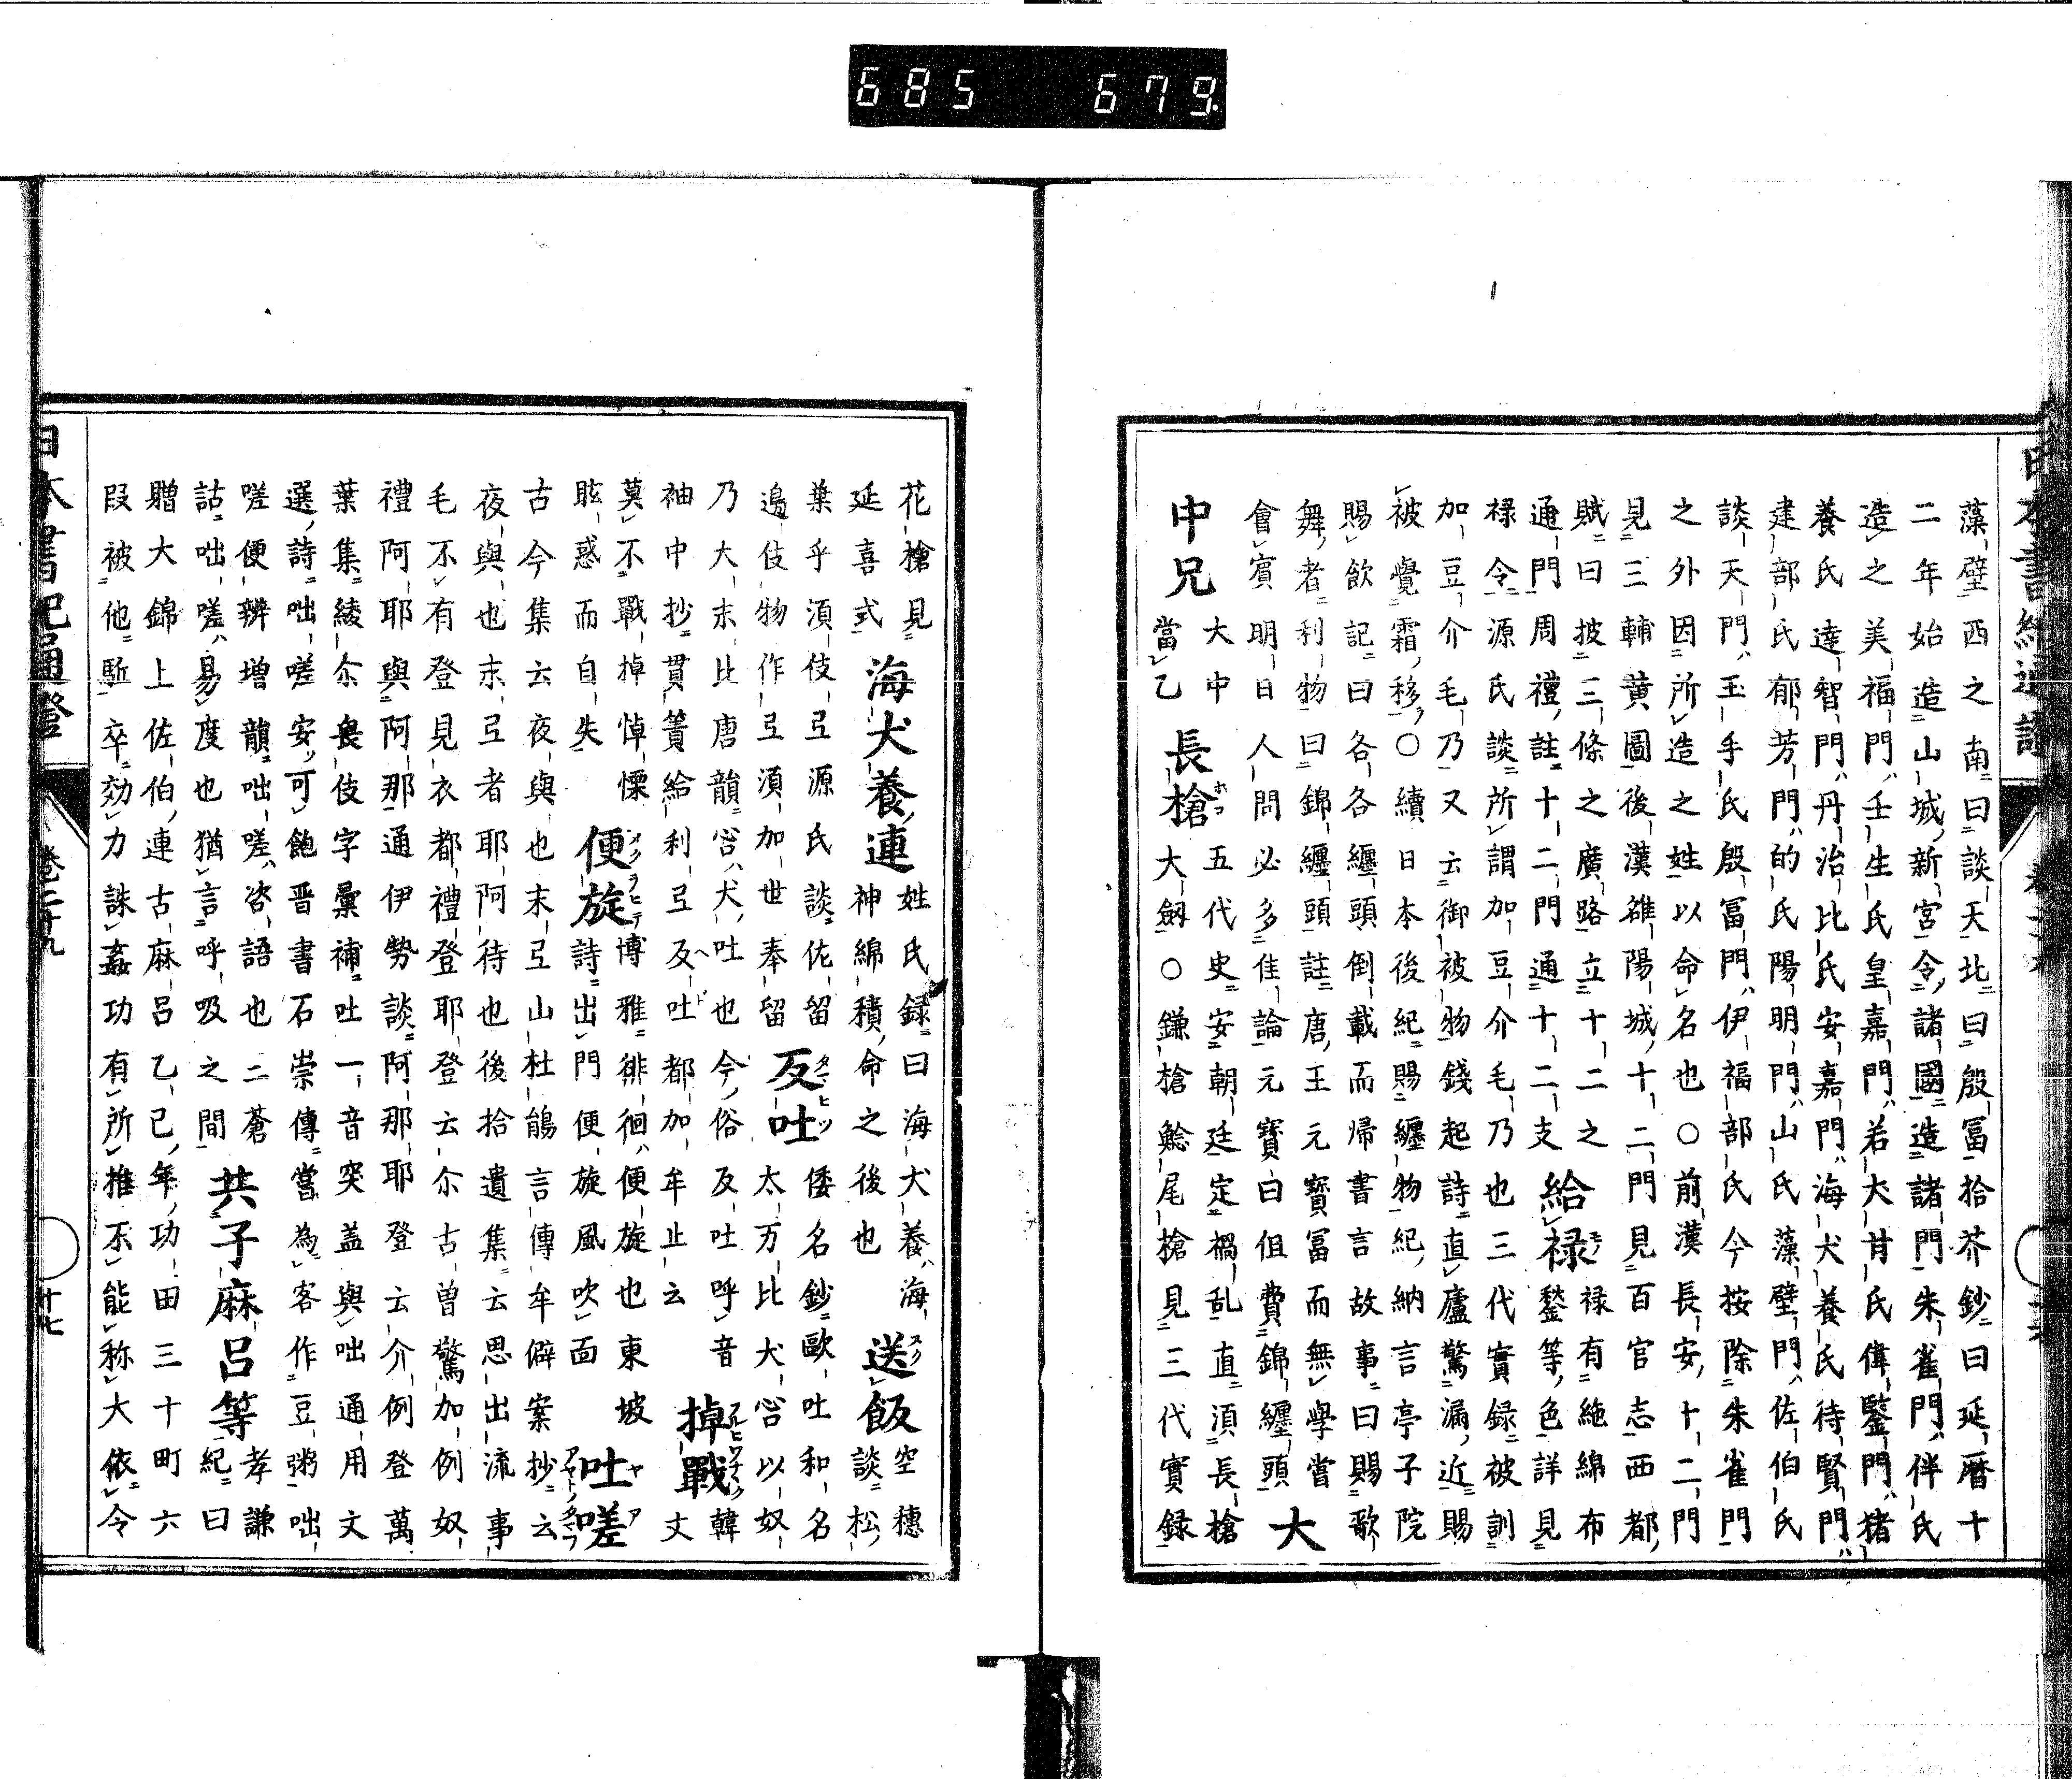 685 679
藻壁西之南曰談天北曰殷冨拾芥鈔曰延暦十
二年始造山城新宮令諸國造諸門朱雀門伴氏
造之美福門壬生氏皇嘉門若犬甘氏偉鑒門猪
養氏達智門丹治比氏安嘉門海犬養氏待賢門
建部氏郁芳門的氏陽明門山氏藻壁門佐伯氏
談天門玉手氏殷冨門伊福部氏今按除朱雀門
之外因所造之姓以命名也○前漢長安十二門
見三輔黄圖後漢雒陽城十二門見百官志西都
賦曰披三條之廣路立十二之
通門周禮註十二門通十二支
給禄
禄有絁綿布
鍫等色詳見
禄令源氏談所謂加豆介毛乃也三代實録被訓
加豆介毛乃又云御被物錢起詩直廬驚漏近賜
被覺霜移○續日本後紀賜纏物紀納言亭子院
賜飲記曰各各纏頭倒載而帰書言故事曰賜歌
舞者利物曰錦纏頭註唐王元寳冨而無學嘗
會賓明日人問必多佳論元寳曰但費錦纏頭
大
中兄
大中
當乙
長槍
五代史安朝廷定禍乱直須長槍
大劔○鎌槍鯰尾槍見三代實録
花槍見
延喜式
海犬養連
姓氏録曰海犬養海
神綿積命之後也
送飯
空穂
談松
葉乎湏伎弖源氏談佐留
邊伎物作弖湏加世奉留
反吐
倭名鈔歐吐和名
太万比犬㕩以奴
乃大末比唐韻㕩犬吐也今俗反吐呼音
袖中抄貫簀給利弖反吐都加牟止云
掉戰
韓
丈
莫不戰掉悼慄
眩惑而自失
便旋
博雅徘徊便旋也東坡
詩出門便旋風吹面
吐嗟
古今集云夜與也末弖山杜鵑言傳牟僻案抄云
夜與也末弖者耶阿待也後拾遺集云思出流事
毛不有登見衣都禮登耶登云尓古曽驚加例奴
禮阿耶與阿那通伊勢談阿那耶登云介例登萬
葉集綾尓畏伎字彙補吐一音突盖與咄通用文
選詩咄嗟安可飽晋書石崇傳嘗為客作豆粥咄
嗟便辨增韻咄嗟咨語也二蒼
詁咄嗟易度也猶言呼吸之間
共子麻呂等
孝謙
紀曰
贈大錦上佐伯連古麻呂乙巳年功田三十町六
段被他駈卒効力誅姦功有所推不能称大依令
日本書紀通證
卷二十九
十七